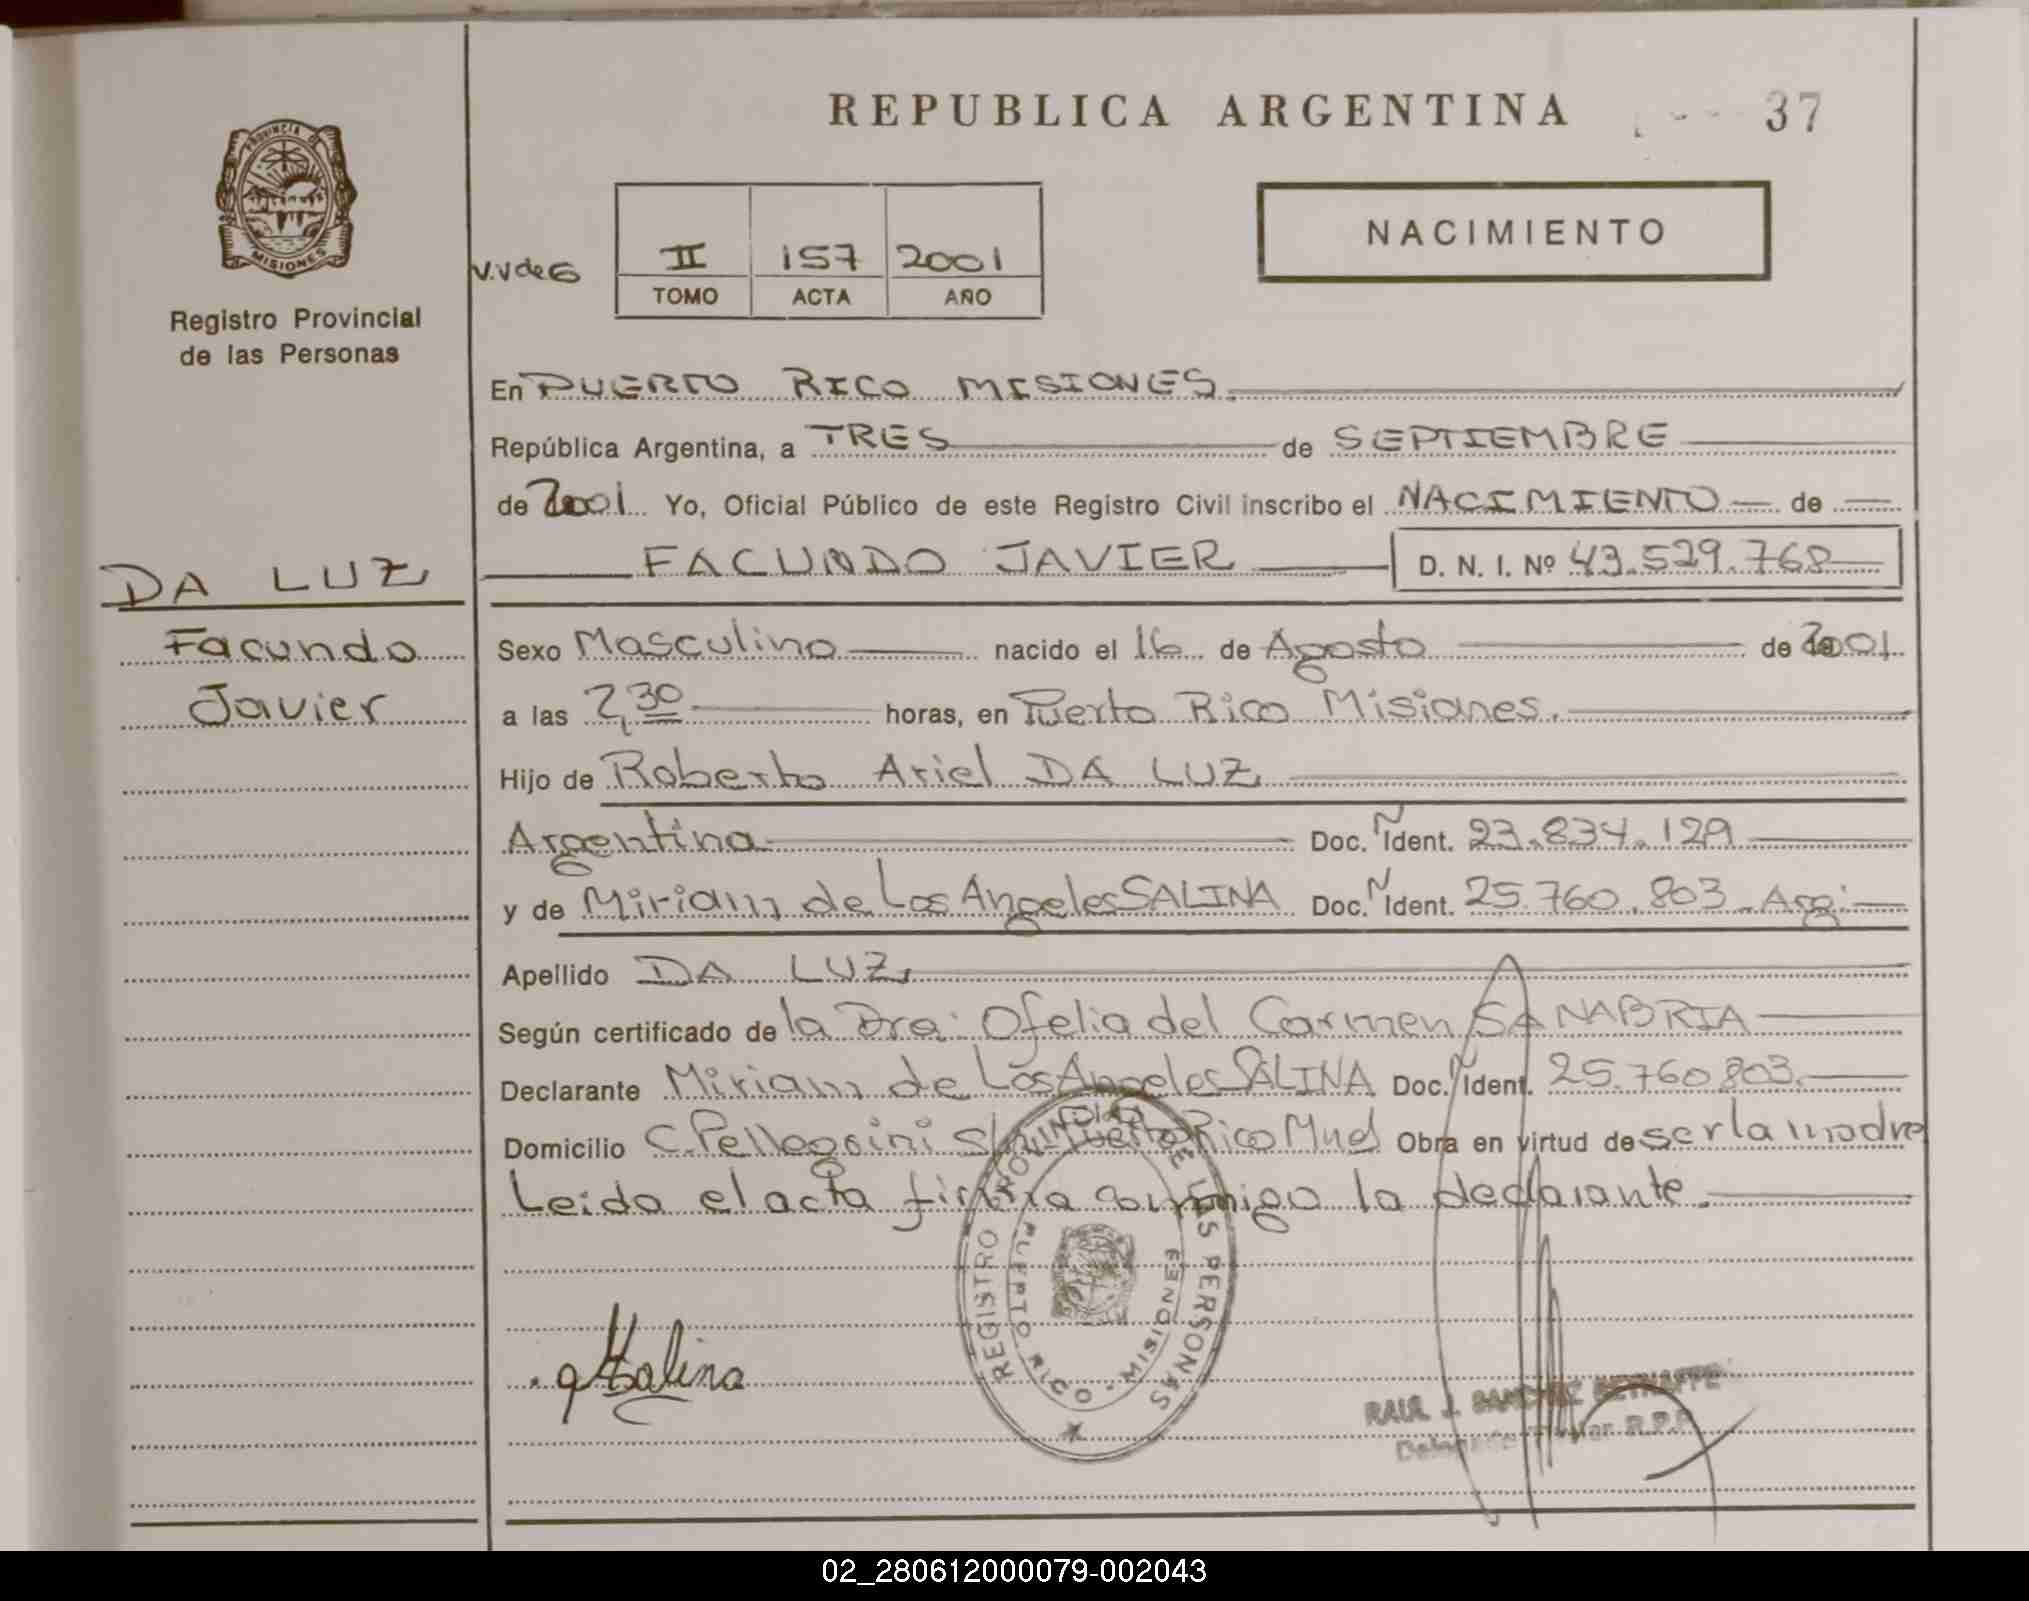 REPUBLICA ARGENTINA
37
PROVINCIA DE
MISIONES
Registro Provincial
de las Personas
NACIMIENTO
V.V de G
II 157 2001
TOMO ACTA AÑO
En PUERTO RICO MISIONES.
República Argentina, a TRES de SEPTIEMBRE
de 2001 Yo, Oficial Público de este Registro Civil inscribo el NACIMIENTO de
FACUNDO JAVIER D. N. I. Nº 43.529.768
DA LUZ
Facundo
Javier
Sexo Masculino nacido el 16 de Agosto de 2001
a las 2,30 horas, en Puerto Rico Misiones.
Hijo de Roberto Ariel DA LUZ
Argentina Doc. Ñ Ident. 23.834.129
y de Miriam de Los Angeles SALINA Doc. Ñ Ident. 25.760.803 Arg.
Apellido DA LUZ
Según certificado de la Dra. Ofelia del Carmen SANABRIA
Declarante Miriam de Los Angeles SALINA Doc. Ñ Ident. 25.760.803.
Domicilio C. Pellegrini S/N Puerto Rico Mnes Obra en virtud de ser la madre
Leida el acta firma conmigo la declarante.
REGISTRO PROVINCIAL DE LAS PERSONAS
PUERTO RICO - MISIONES
Salina
RAUL J. SANCHEZ
R.P.P.
02_280612000079-002043